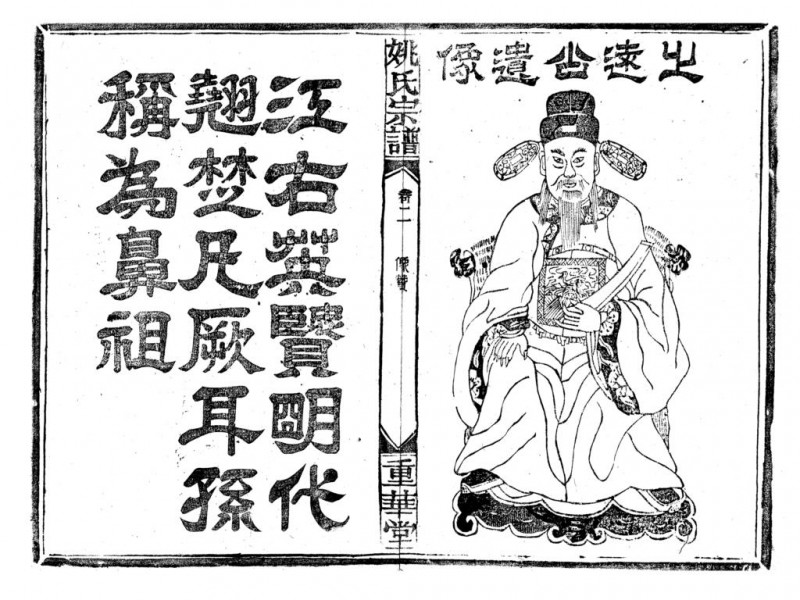 之遠公遺像
姚氏宗譜
卷二
像贊
重華堂
江右英賢明代
翹楚凡厥耳孫
稱為鼻祖